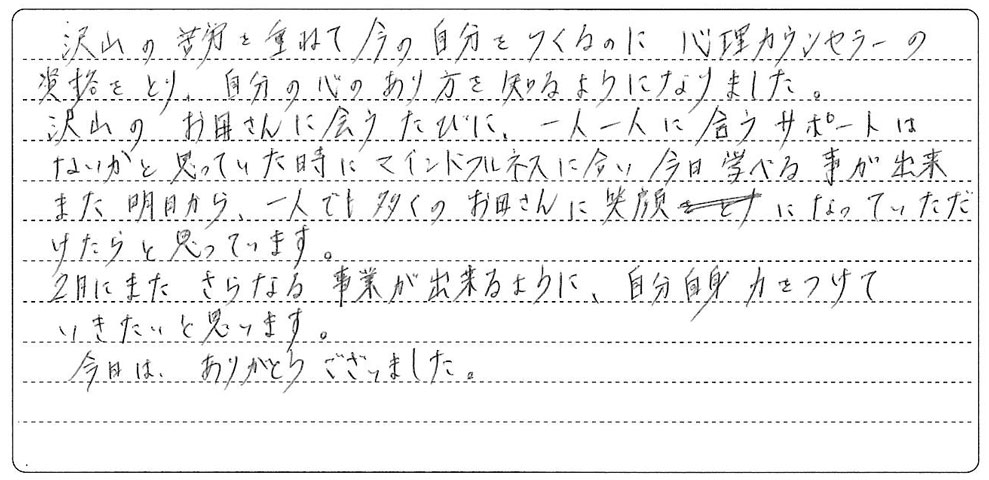 沢山の苦労を重ねて今の自分をつくるのに 心理カウンセラーの
資格をとり、自分の心のあり方を知るようになりました。
沢山の お母さんに会うたびに、一人一人に合うサポートは
ないかと思っていた時にマインドフルネスに合い 今日学べる事が出来
また明日から、一人でも多くのお母さんに笑顔になっていただ
けたらと思っています。
2月にまた さらなる 事業が出来るように、自分自身力をつけて
いきたいと思います。
今日は、ありがとうございました。